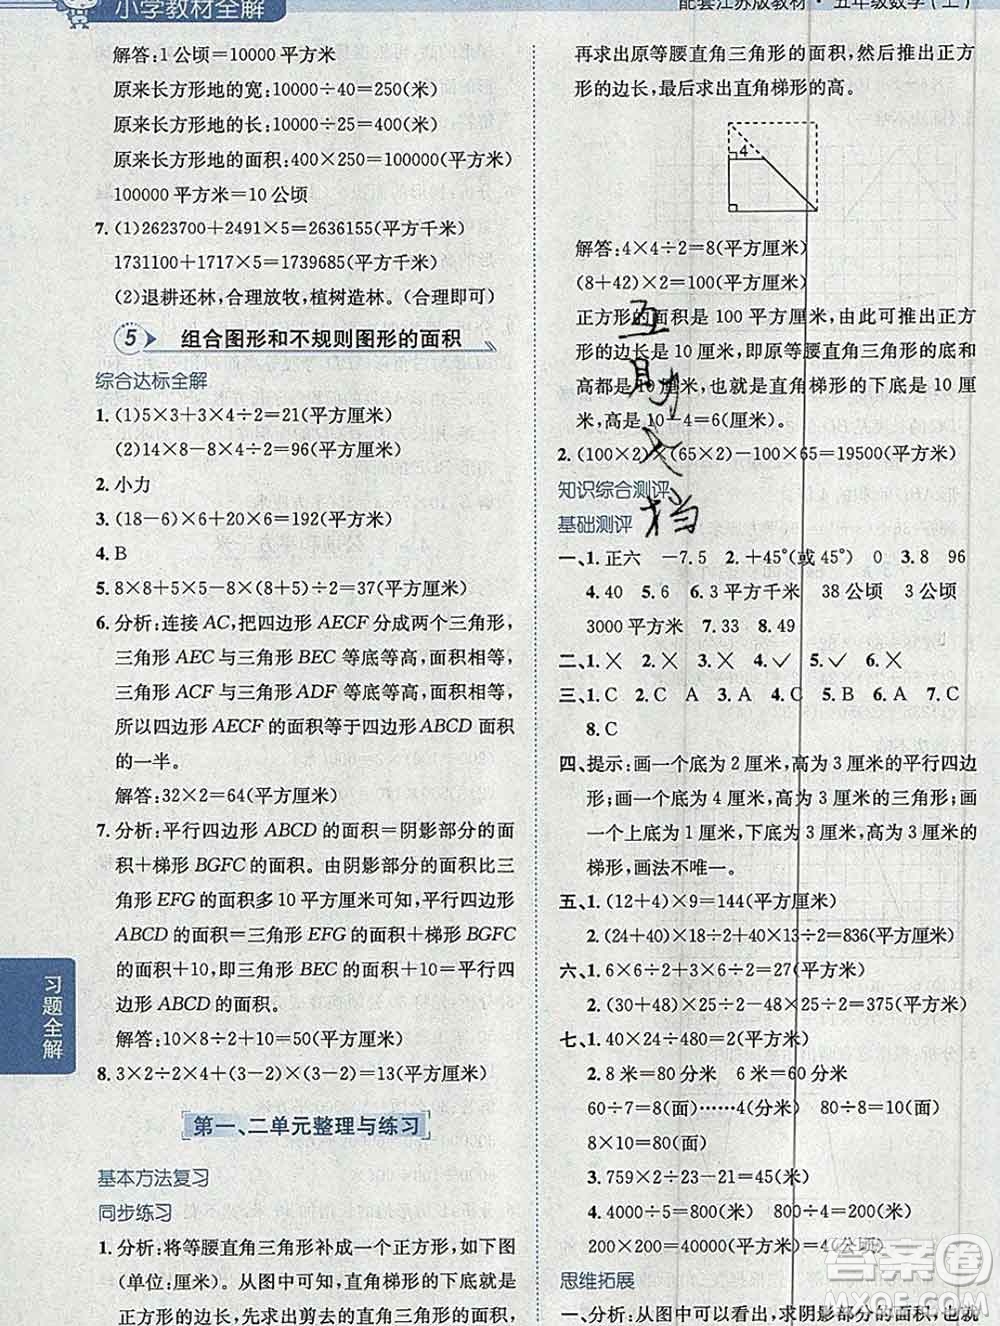 小学教材全解
配套江苏版教材·五年级数学(上)
解答:1公顷=10000平方米
原来长方形地的宽:10000÷40=250(米)
原来长方形地的长:10000÷25=400(米)
原来长方形地的面积:400×250=100000(平方米)
100000平方米=10公顷
7.(1)2623700+2491×5=2636155(平方千米)
1731100+1717×5=1739685(平方千米)
(2)退耕还林,合理放牧,植树造林。(合理即可)
5 组合图形和不规则图形的面积
综合达标全解
1.(1)5×3+3×4÷2=21(平方厘米)
(2)14×8-8×4÷2=96(平方厘米)
2.小力
3.(18-6)×6+20×6=192(平方米)
4.B
5.8×8+5×5-8×(8+5)÷2=37(平方厘米)
6.分析:连接AC,把四边形AECF分成两个三角形,
三角形AEC与三角形BEC等底等高,面积相等,
三角形ACF与三角形ADF等底等高,面积相等,
所以四边形AECF的面积等于四边形ABCD面积
的一半。
解答:32×2=64(平方厘米)
7.分析:平行四边形ABCD的面积=阴影部分的面
积+梯形BGFC的面积。由阴影部分的面积比三
角形EFG的面积多10平方厘米可知,平行四边形
ABCD的面积=三角形EFG的面积+梯形BGFC
的面积+10,即三角形BEC的面积+10=平行四
边形ABCD的面积。
解答:10×8÷2+10=50(平方厘米)
8.3×2÷2×4+(3-2)×(3-2)=13(平方厘米)
习题全解
第一、二单元整理与练习
基本方法复习
同步练习
1.分析:将等腰直角三角形补成一个正方形,如下图
(单位:厘米)。从图中可知,直角梯形的下底就是
正方形的边长,先求出剪去的直角三角形的面积,
再求出原等腰直角三角形的面积,然后推出正方
形的边长,最后求出直角梯形的高。
4
解答:4×4÷2=8(平方厘米)
(8+42)×2=100(平方厘米)
正方形的面积是100平方厘米,由此可推出正方
形的边长是10厘米,即原等腰直角三角形的底和
高都是10厘米,也就是直角梯形的下底是10厘
米,高是10-4=6(厘米)。
2.(100×2)×(65×2)-100×65=19500(平方厘米)
知识综合测评
基础测评
一、1.正六 -7.5 2.+45°(或45°) 0 3.8 96
4.40 5.6 6.3平方千米 38公顷 3公顷
3000平方米 7.33 8.49
二、1.× 2.× 3.× 4.√ 5.√ 6.×
三、1.C 2.C A 3.A 4.C 5.B 6.A 7.C
8.C
四、提示:画一个底为2厘米,高为3厘米的平行四边
形;画一个底为4厘米,高为3厘米的三角形;画
一个上底为1厘米,下底为3厘米,高为3厘米的
梯形,画法不唯一。
五、1.(12+4)×9=144(平方厘米)
2.(24+40)×18÷2+40×13÷2=836(平方厘米)
六、1.6×6÷2+3×6÷2=27(平方米)
2.(30+48)×25÷2-48×25÷2=375(平方米)
七、1.40×24÷480=2(平方米)
2.8米=80分米
60÷7=8(面)……4(分米) 80÷8=10(面)
8×10=80(面)
3.759×2÷22-44=25(米)
4.4000÷5=800(米) 800÷4=200(米)
200×200=40000(平方米)=4(公顷)
思维拓展
一、分析:从图中可以看出,求阴影部分的面积,也就
答案圈
MXQE.COM